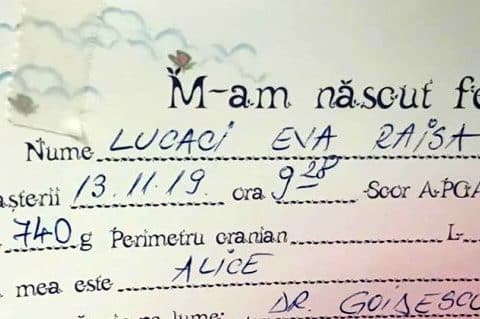 M-am născut fe
Nume LUCACI EVA RAISA
așterii 13.11.19. ora 9 28 Scor APGA
740 g Perimetru cranian L
mea este ALICE
lume: DR. GOIDESCU